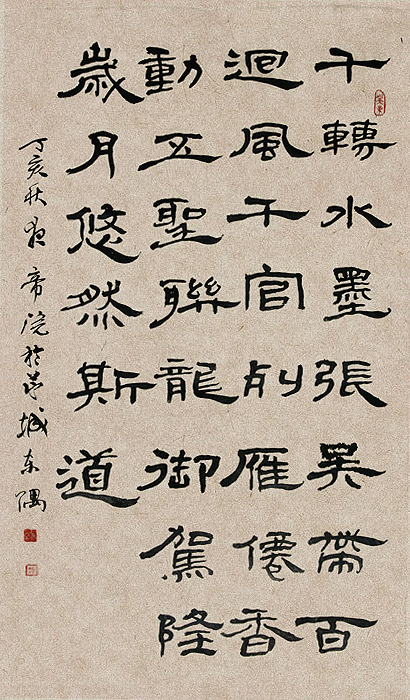 千轉水墨張吳帶百
迴風千官列雁僊香
動五聖聯龍御駕隆
歲月悠然斯道
丁亥秋帝浣於蓉城东隅